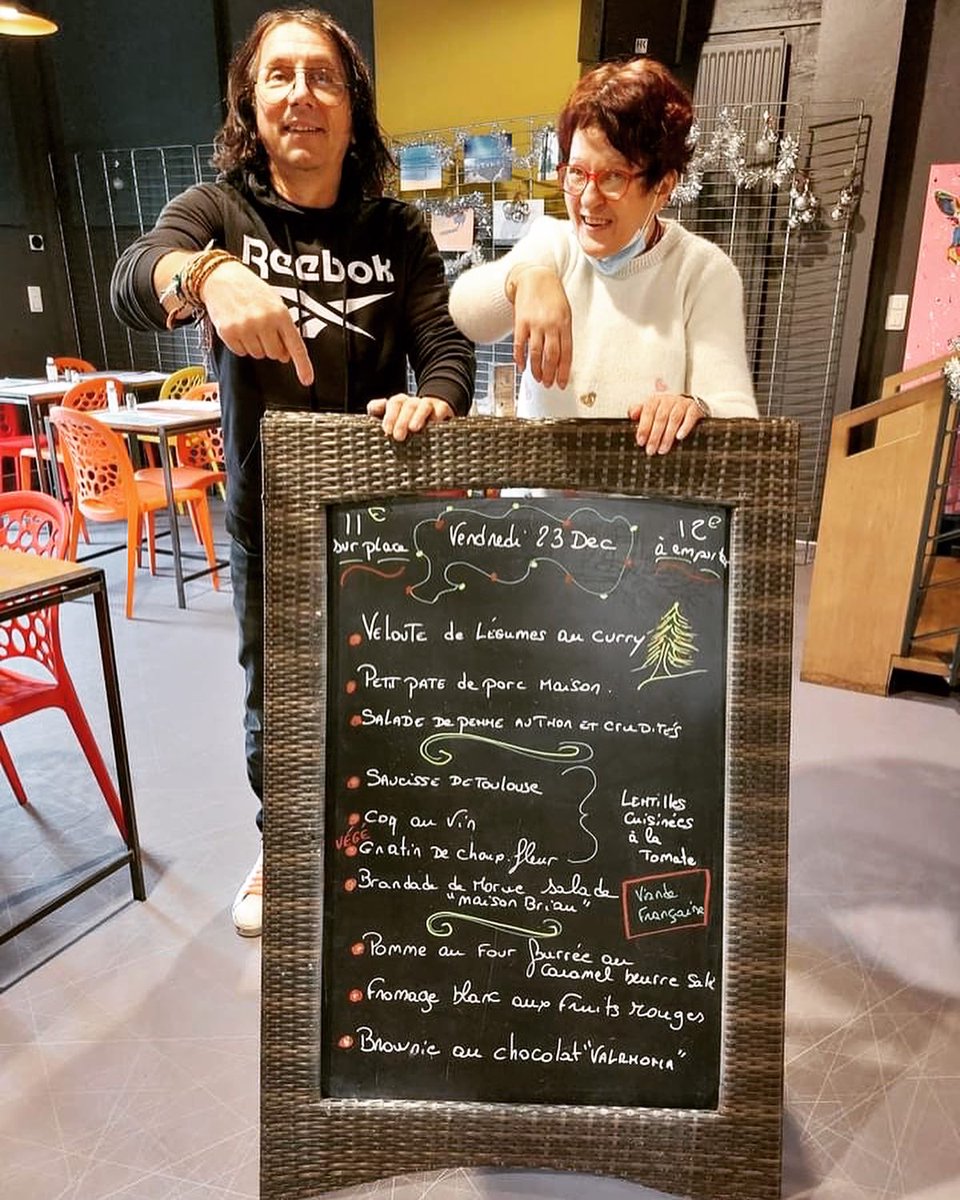 Reebok
11€
sur place
Vendredi 23 Dec
12€
à emporter
Velouté de Légumes au curry
Petit pate de porc Maison.
Salade de penne au Thon et crudités
Saucisse de Toulouse
Coq au Vin
VÉGÉ
Gratin de choux.fleur
Lentilles
Cuisinées
à la
Tomate
Brandade de Morue salade
"Maison Briau"
Viande
Française
Pomme au Four fourrée au
Caramel beurre salé
Fromage blanc aux fruits rouges
Brownie au chocolat "VALRHONA"